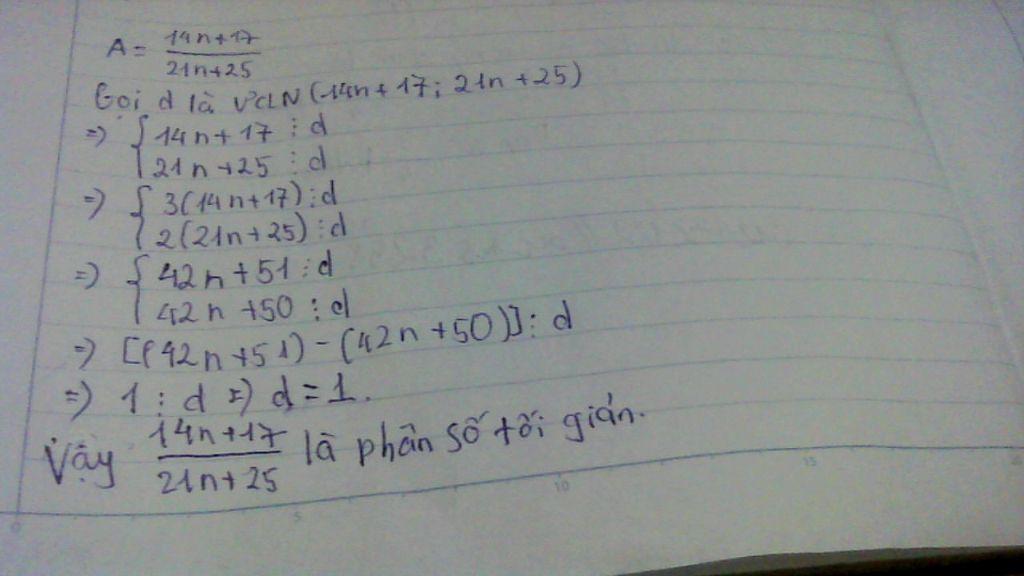 A = 14n+17 / 21n+25
Gọi d là ƯCLN (14n + 17; 21n + 25)
=> { 14n + 17 ⋮ d
21n + 25 ⋮ d
=> { 3(14n+17) ⋮ d
2(21n+25) ⋮ d
=> { 42n + 51 ⋮ d
42n + 50 ⋮ d
=> [(42n+51) - (42n+50)] ⋮ d
=> 1 ⋮ d => d = 1.
Vậy 14n+17 / 21n+25 là phân số tối giản.
5 10 15